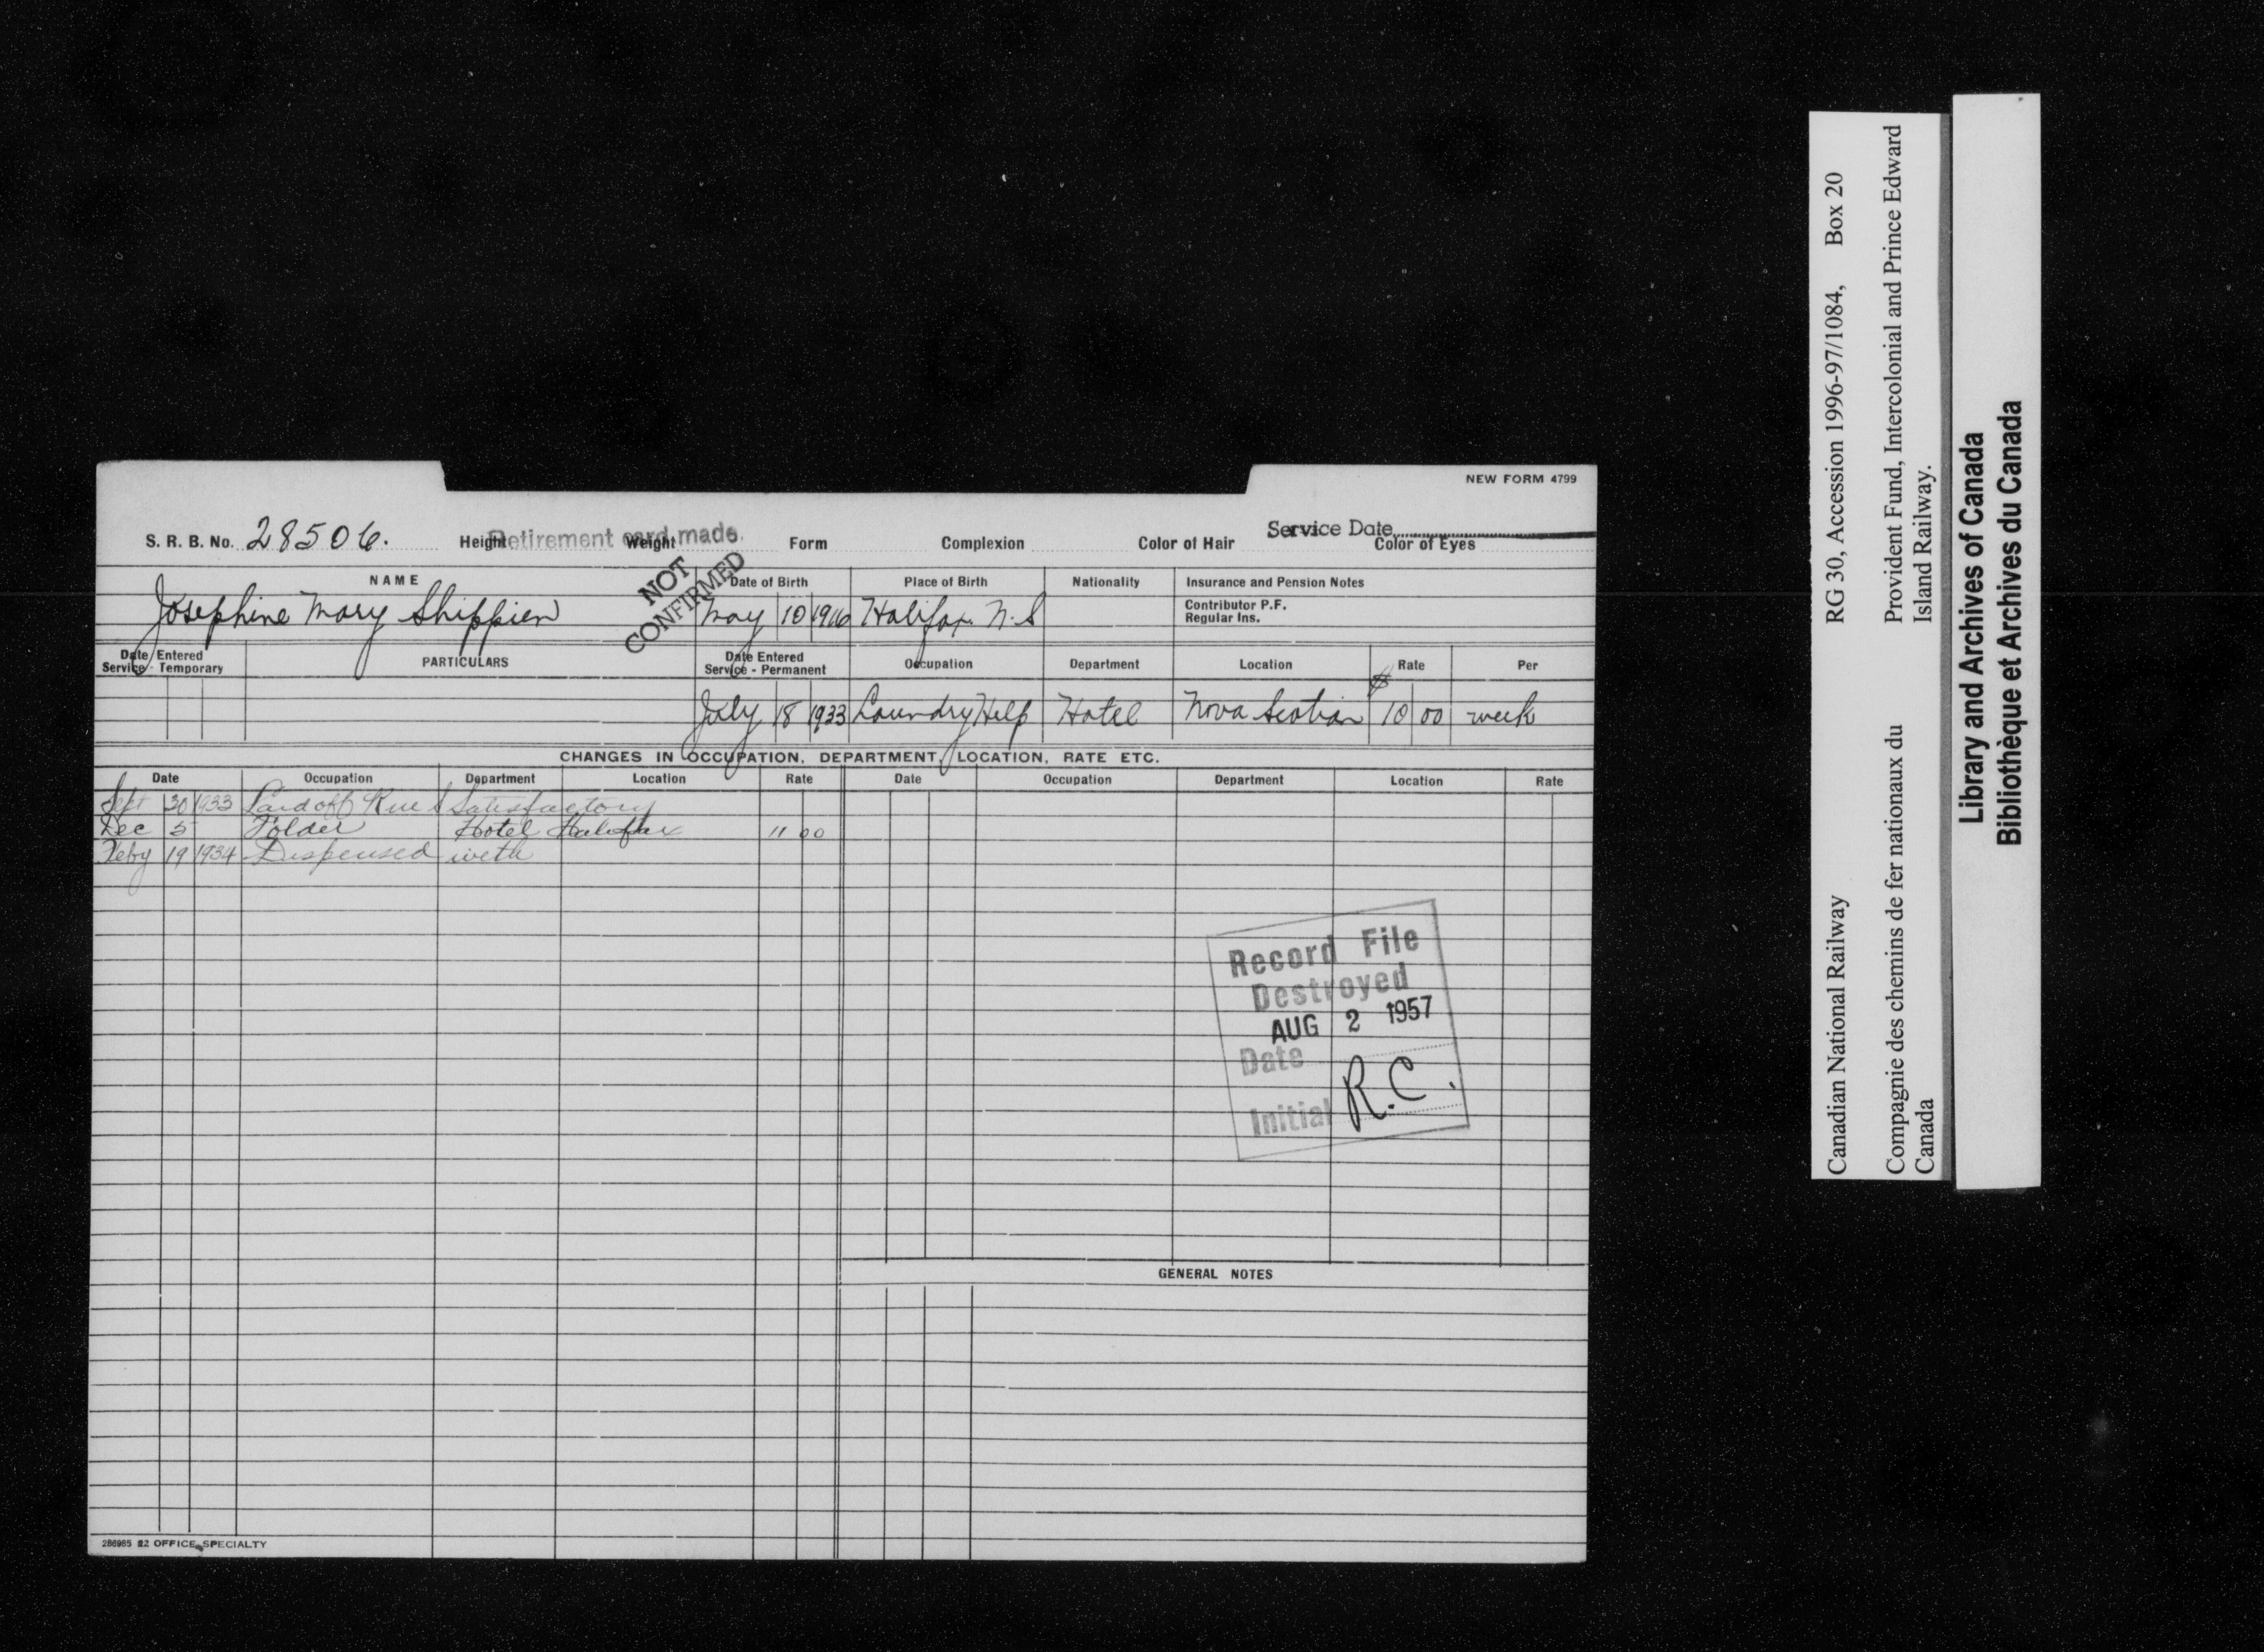 NEW FORM 4799
S. R. B. No. 28506. Height Weight Form Complexion Color of Hair Color of Eyes
Retirement card made.
Service Date
NOT
CONFIRMED
NAME Date of Birth Place of Birth Nationality Insurance and Pension Notes
Josephine Mary Shippien May 10 1916 Halifax N.S
Contributor P.F.
Regular Ins.
Date Entered Service - Temporary PARTICULARS Date Entered Service - Permanent Occupation Department Location Rate Per
July 18 1933 Laundry Help Hotel Nova Scotian $ 10 00 week
CHANGES IN OCCUPATION, DEPARTMENT, LOCATION, RATE ETC.
Date Occupation Department Location Rate Date Occupation Department Location Rate
Sept 30 1933 Laid off Satisfactory
Dec 5 Folder Hotel Halifax 11 00
Feby 19 1934 Dispensed with
Record File
Destroyed
AUG 2 1957
Date
Initial R.C.
GENERAL NOTES
286985 22 OFFICE SPECIALTY
Canadian National Railway RG 30, Accession 1996-97/1084, Box 20
Compagnie des chemins de fer nationaux du Provident Fund, Intercolonial and Prince Edward
Canada Island Railway.
Library and Archives of Canada
Bibliothèque et Archives du Canada